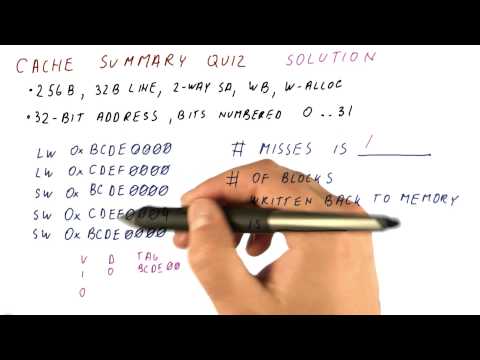 CACHE SUMMARY QUIZ SOLUTION
• 256B, 32B LINE, 2-WAY SA, WB, W-ALLOC
• 32-BIT ADDRESS, BITS NUMBERED 0..31
LW 0xBCDE0000
LW 0xCDEF0000
SW 0xBCDE0000
SW 0xCDEF0004
SW 0xBCDE0000
# MISSES IS 1
# OF BLOCKS
WRITTEN BACK TO MEMORY
IS
V D TAG
1 0 BCDE00
0